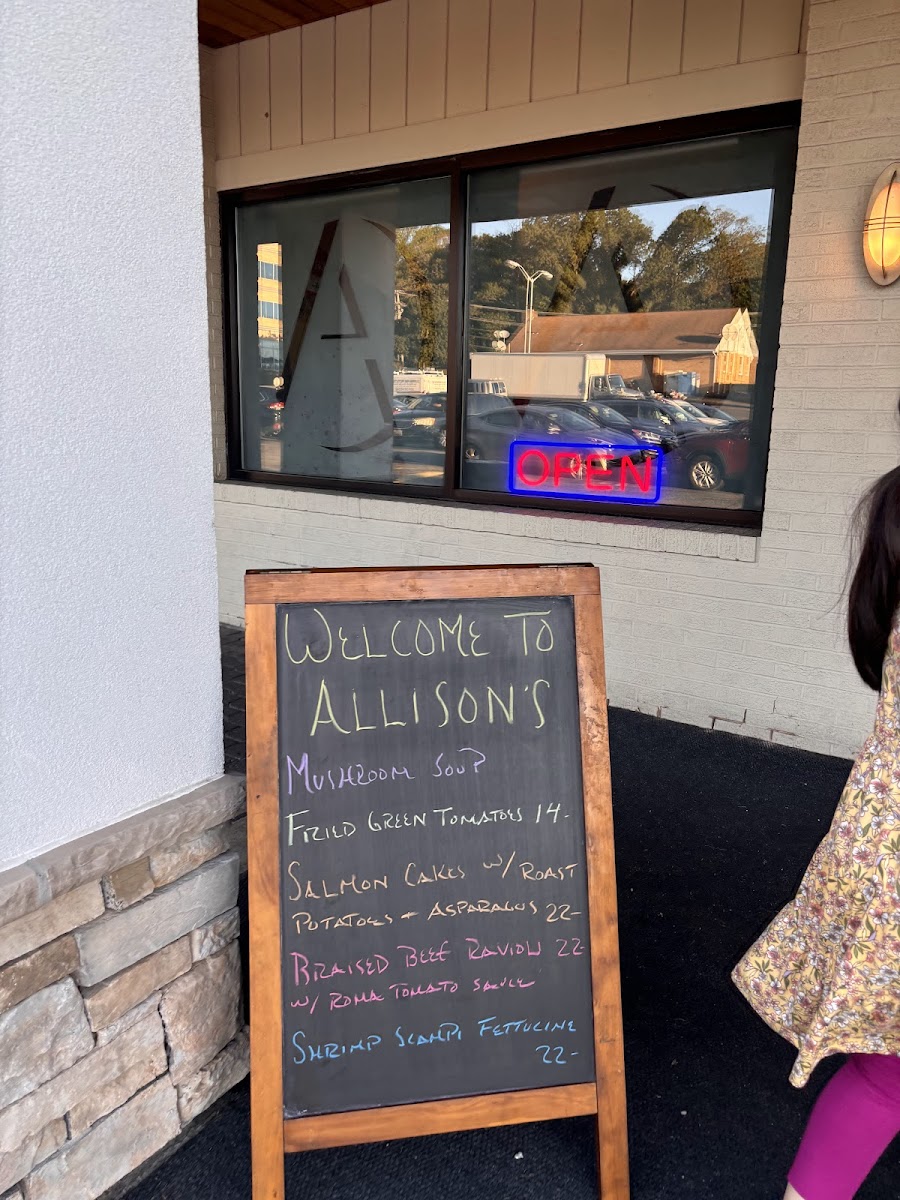 A
OPEN
WELCOME TO
ALLISON'S
MUSHROOM SOUP
FRIED GREEN TOMATOES 14-
SALMON CAKES W/ ROAST
POTATOES + ASPARAGUS 22-
BRAISED BEEF RAVIOLI 22
W/ ROMA TOMATO SAUCE
SHRIMP SCAMPI FETTUCINE
22-